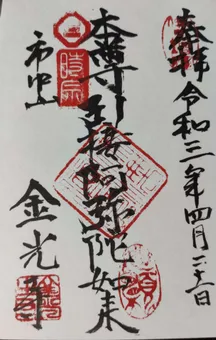 奉拝 令和三年四月二十一日
本尊 引接阿弥陀如来
時宗
市中山
金光寺